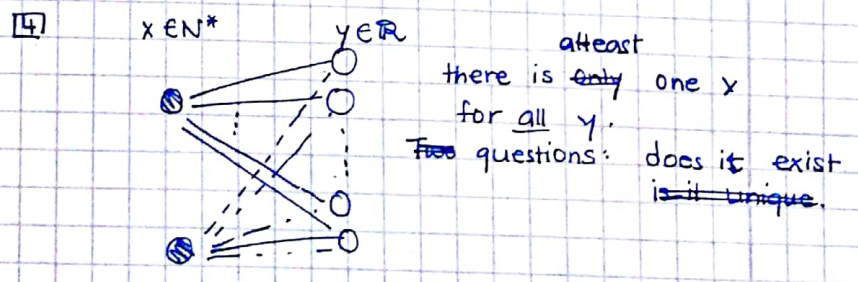 4
x ∈ N*
y ∈ R
atleast
there is only one x
for all y.
Two questions: does it exist
is it unique.